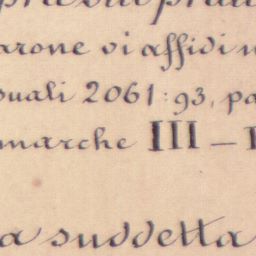 arone vi affidi
suali 2061:93, pa
marche III –
a suddetta